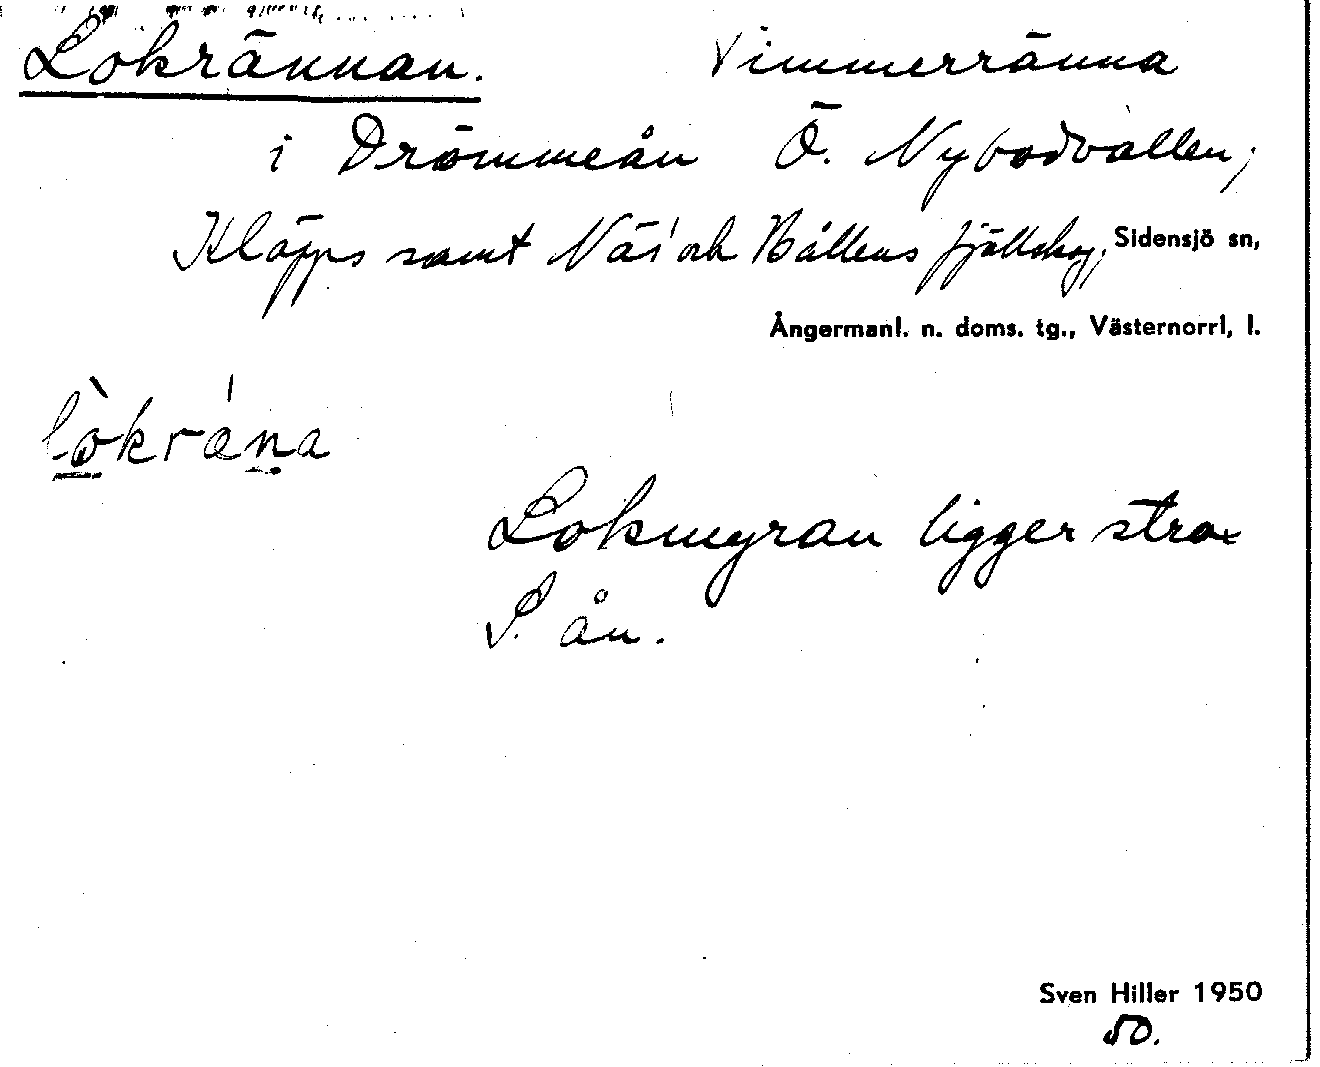 Lokrännan. Timmerränna
i Drömmeån Ö. Nybodvallen,
Kläpps samt Näs' och Hållens fjällskog, Sidensjö sn,
Ångermanl. n. doms. tg., Västernorrl, l.
Lokmyran ligger strax
S. ån.
Sven Hiller 1950
50.